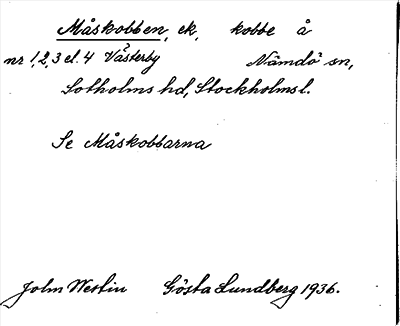 Måskobben, ek, kobbe å
nr 1,2,3 el. 4 Västerby Nämdö sn,
Sotholms hd, Stockholms l.
Se Måskobbarna
John Westin Gösta Lundberg 1936.